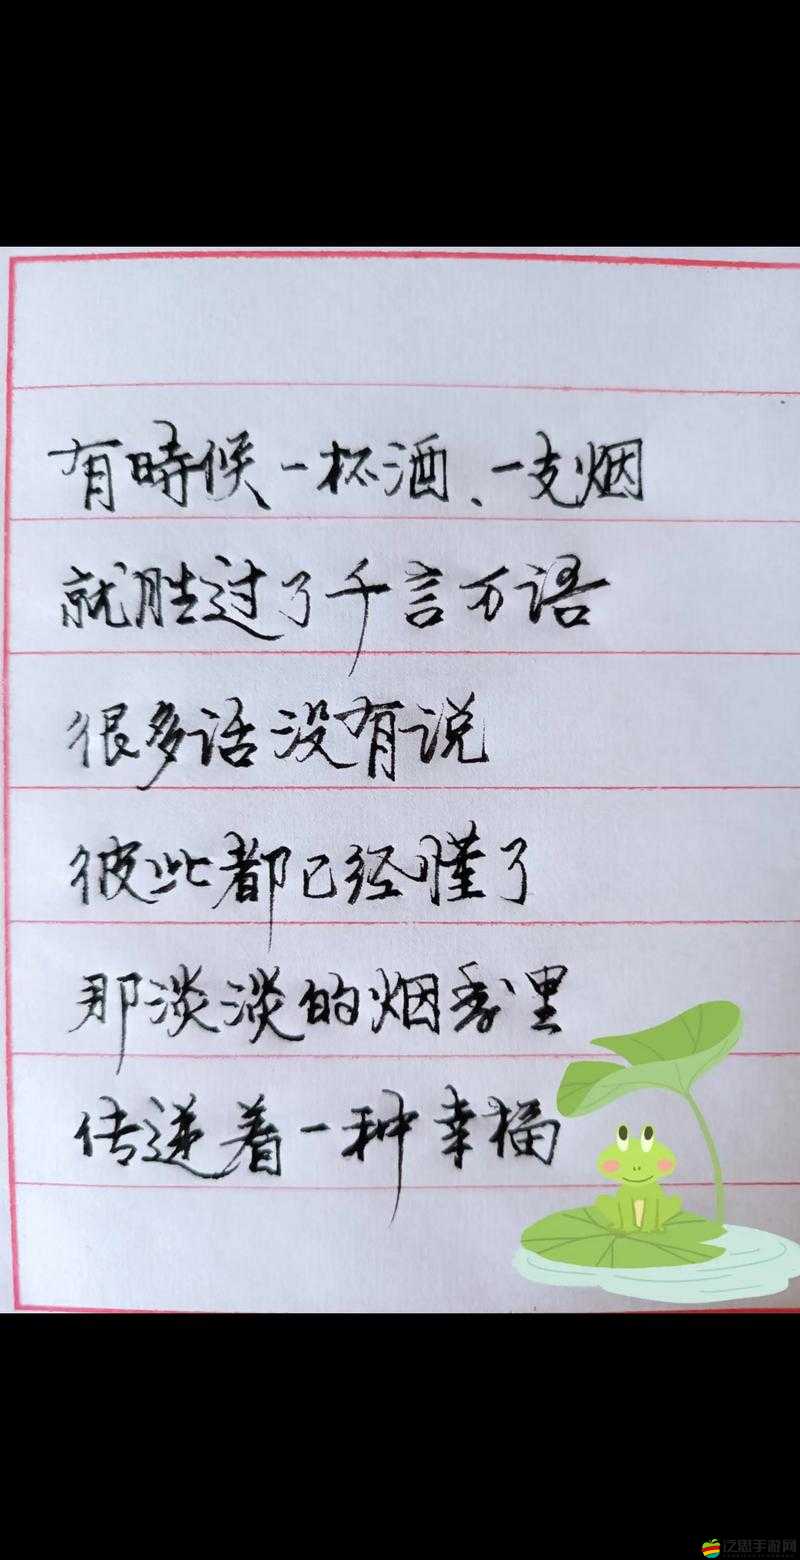 有時候一杯酒、一支烟
就胜过了千言万语
很多话没有说
彼此都已经懂了
那淡淡的烟雾里
传递着一种幸福
亿恩手游网